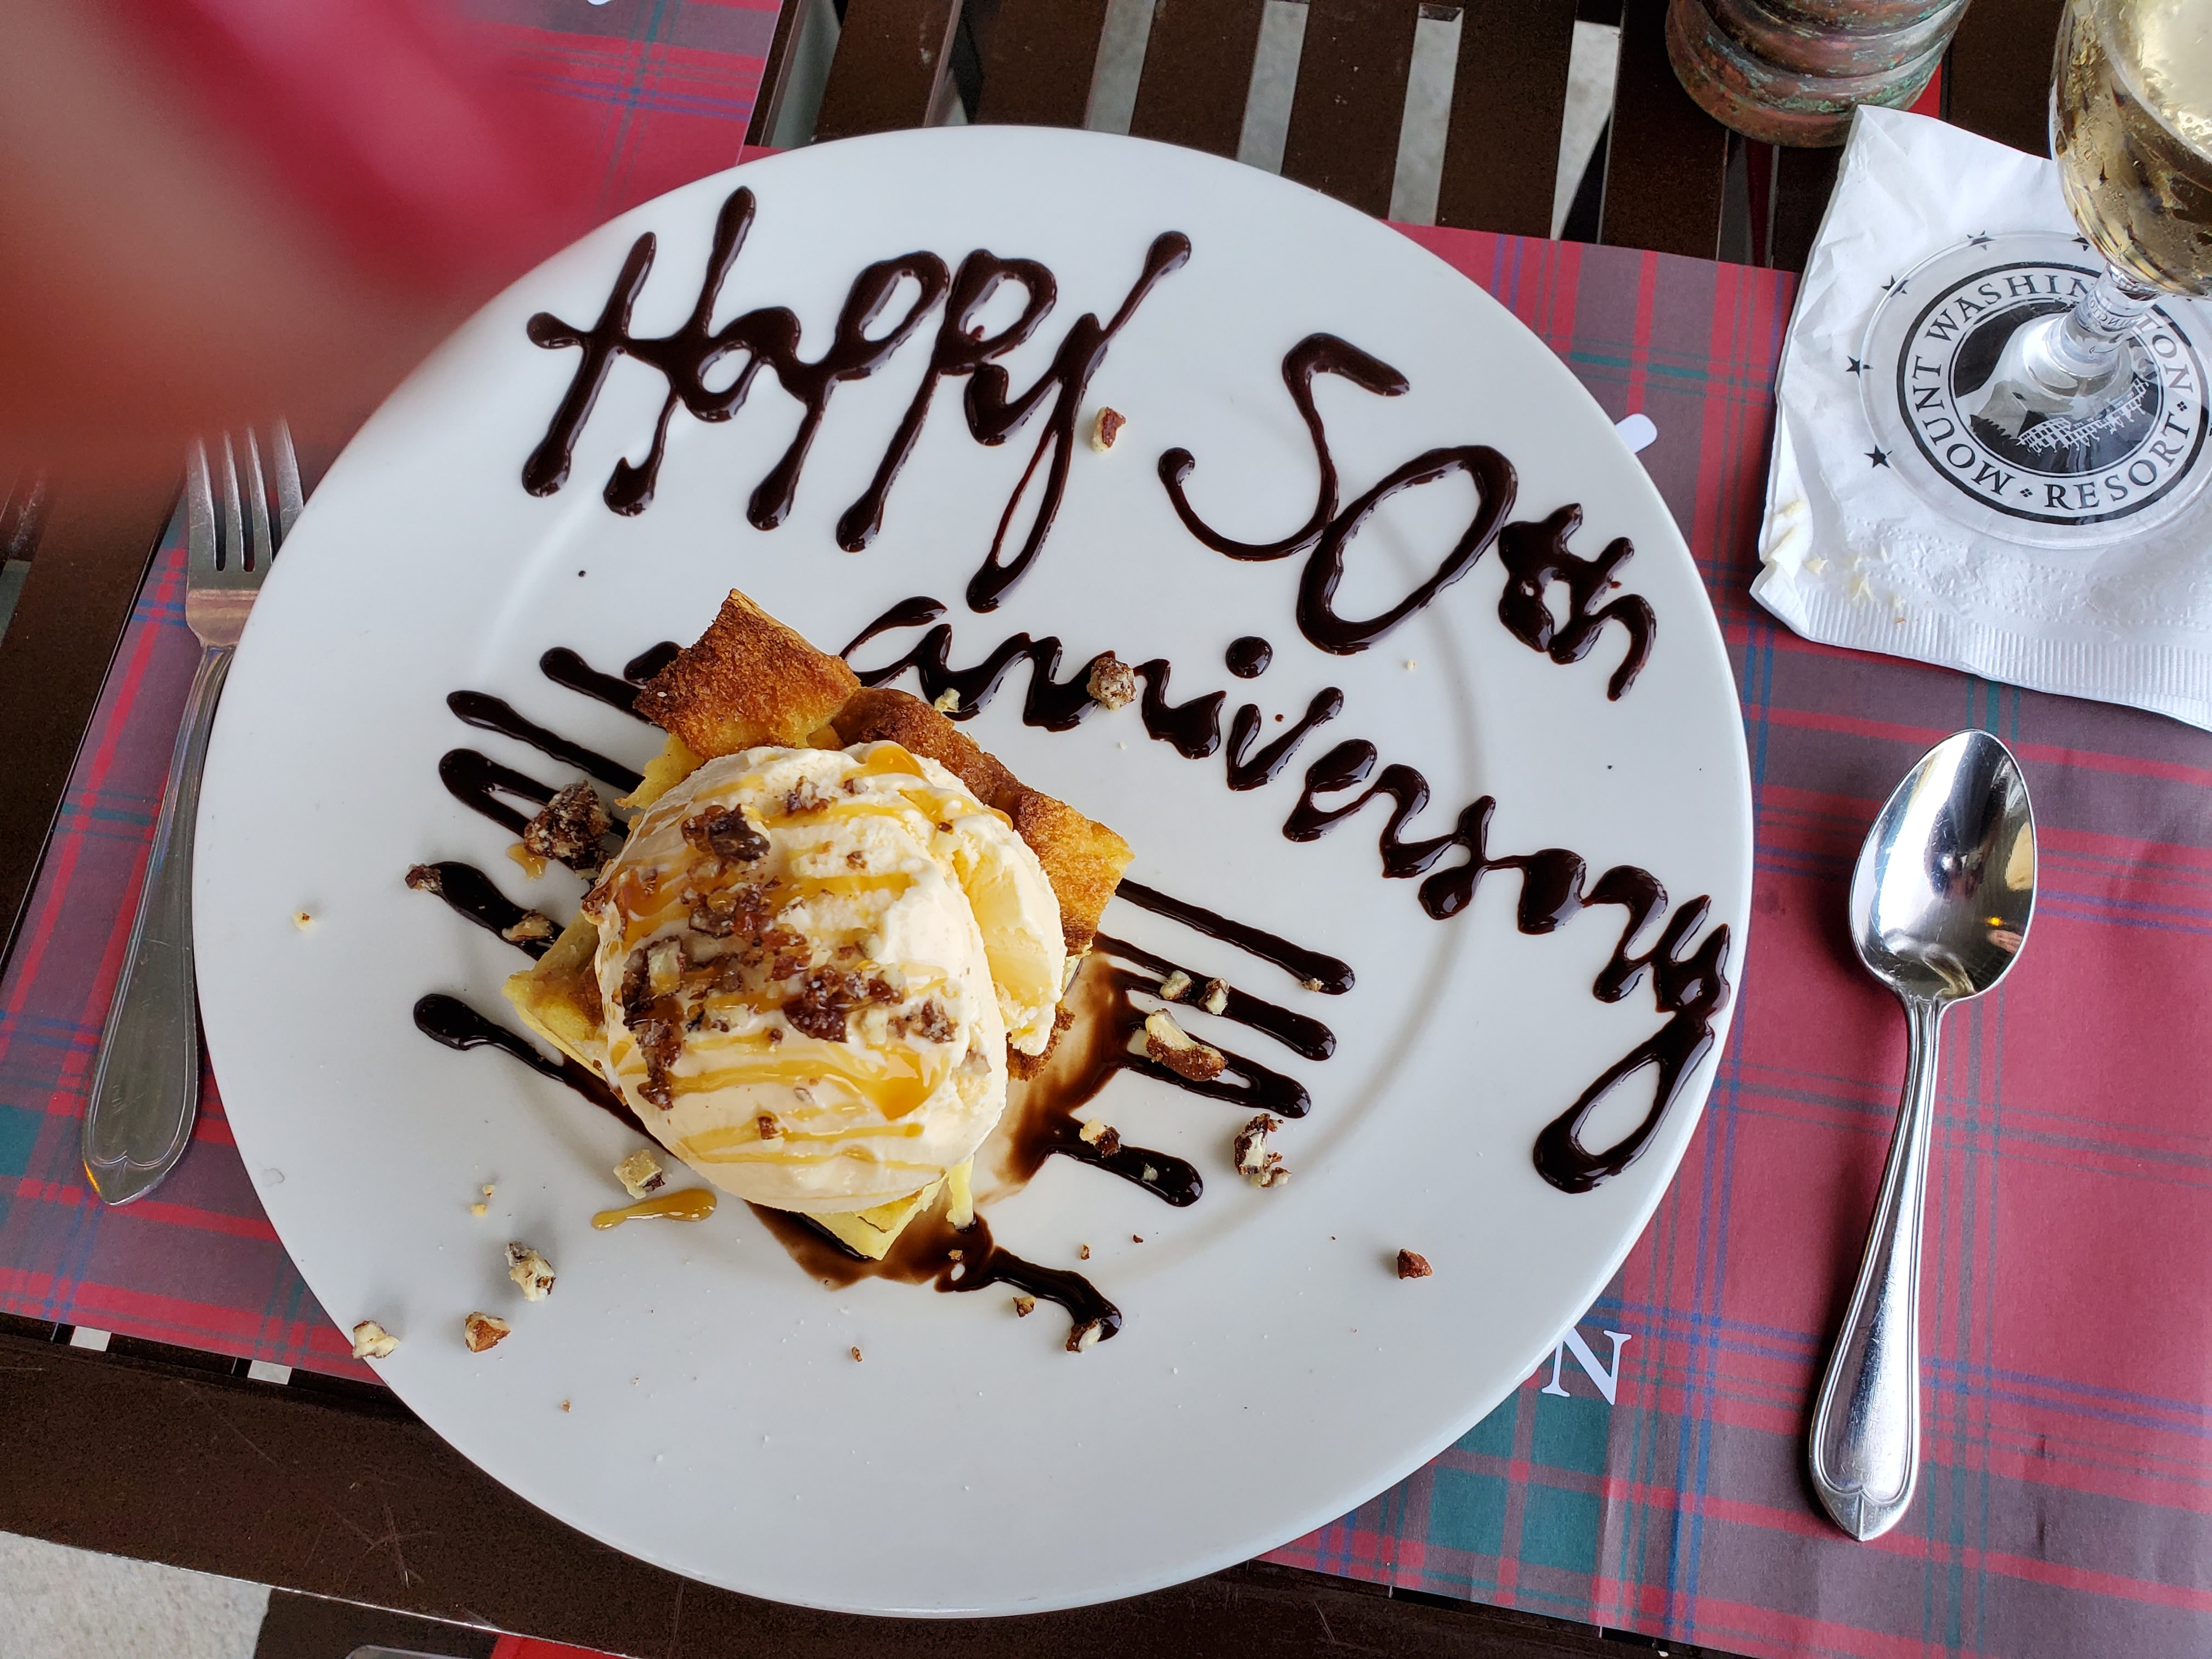 Happy 50th
anniversary
MOUNT WASHINGTON
RESORT
N